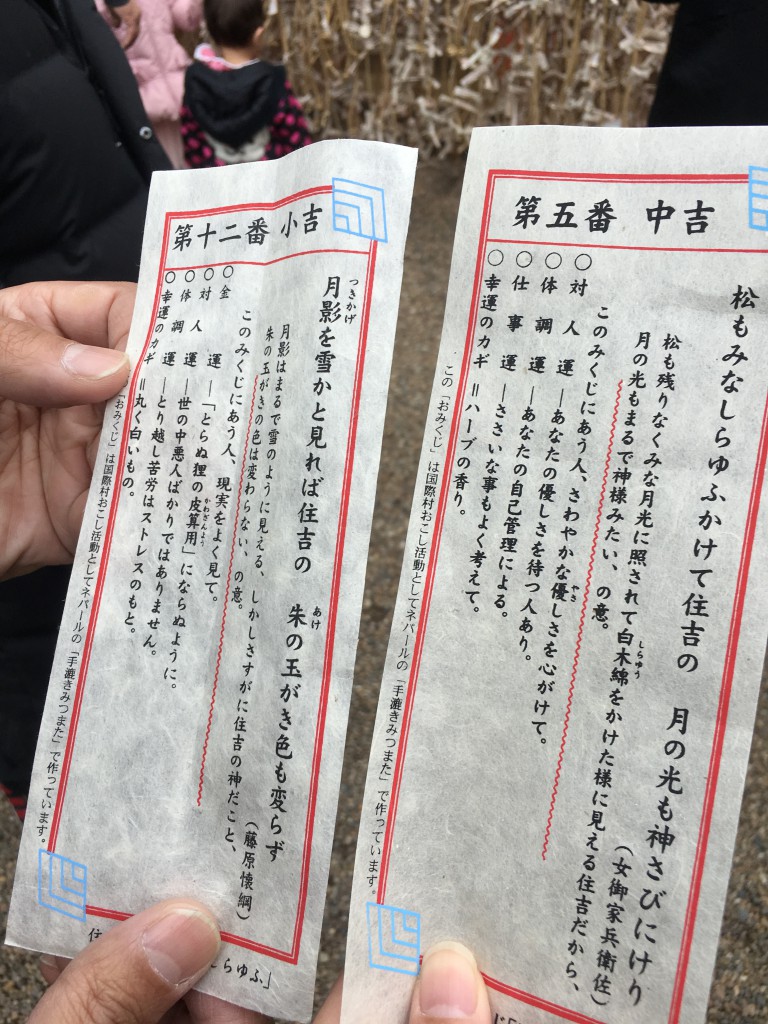 第十二番 小吉
月影を雪かと見れば住吉の 朱の玉がき色も変らず
つきかげ
あけ
(藤原懐綱)
月影はまるで雪のように見える、しかしさすがに住吉の神だこと、
朱の玉がきの色は変わらない、の意。
このみくじにあう人、現実をよく見て。
○金 運―「とらぬ狸の皮算用」にならぬように。
かわざんよう
○対人運―世の中悪人ばかりではありません。
○体調運―とり越し苦労はストレスのもと。
○幸運のカギ=丸く白いもの。
「おみくじ」は国際村おこし活動としてネパールの「手漉きみつまた」で作っています。
住
らゆふ」
第五番 中吉
松もみなしらゆふかけて住吉の 月の光も神さびにけり
(女御家兵衛佐)
松も残りなくみな月光に照されて白木綿をかけた様に見える住吉だから、
しらゆう
月の光もまるで神様みたい、の意。
このみくじにあう人、さわやかな優しさを心がけて。
やさ
○対人運―あなたの優しさを待つ人あり。
○体調運―あなたの自己管理による。
○仕事運―ささいな事もよく考えて。
○幸運のカギ=ハーブの香り。
この「おみくじ」は国際村おこし活動としてネパールの「手漉きみつまた」で作っています。